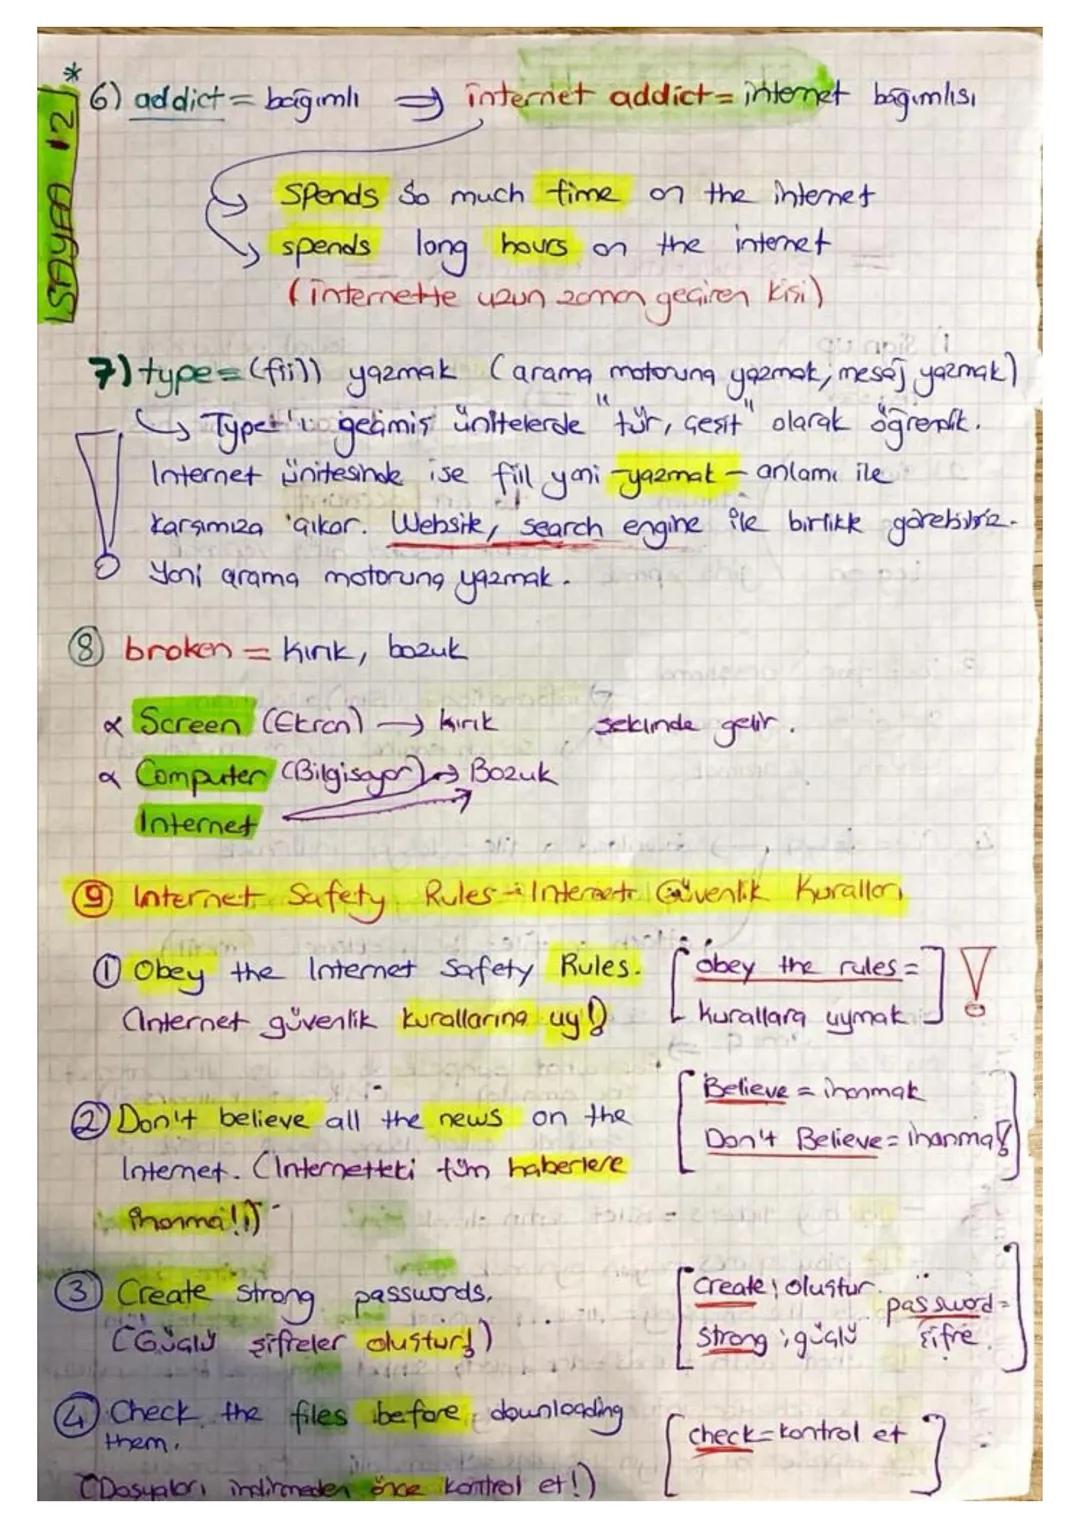 *
SAYFA 12
6) addict = bağımlı → internet addict = internet bağımlısı
spends so much time on the internet
spends long hours on the internet
(internette uzun zaman geçiren kişi)
7) type = (fiil) yazmak (arama motoruna yazmak, mesaj yazmak)
Type'ı geçmiş ünitelerde "tür, çeşit" olarak öğrendik.
Internet ünitesinde ise fiil yani -yazmak- anlamı ile
karşımıza çıkar. Website, search engine ile birlikte görebiliriz.
Yani arama motoruna yazmak.
8) broken = kırık, bozuk
Screen (Ekran) → kırık şeklinde gelir.
Computer (Bilgisayar) → Bozuk
Internet
9) Internet Safety Rules - Internet Güvenlik Kuralları
1) Obey the Internet Safety Rules. [obey the rules =
(Internet güvenlik kurallarına uy!) kurallara uymak] !
[Believe = inanmak
2) Don't believe all the news on the Don't Believe = inanma!]
Internet. (Internetteki tüm haberlere
inanma!)
3) Create strong passwords. [Create; oluştur password =
(Güçlü şifreler oluştur!) Strong; güçlü şifre]
4) Check the files before downloading [check = kontrol et]
them.
(Dosyaları indirmeden önce kontrol et!)